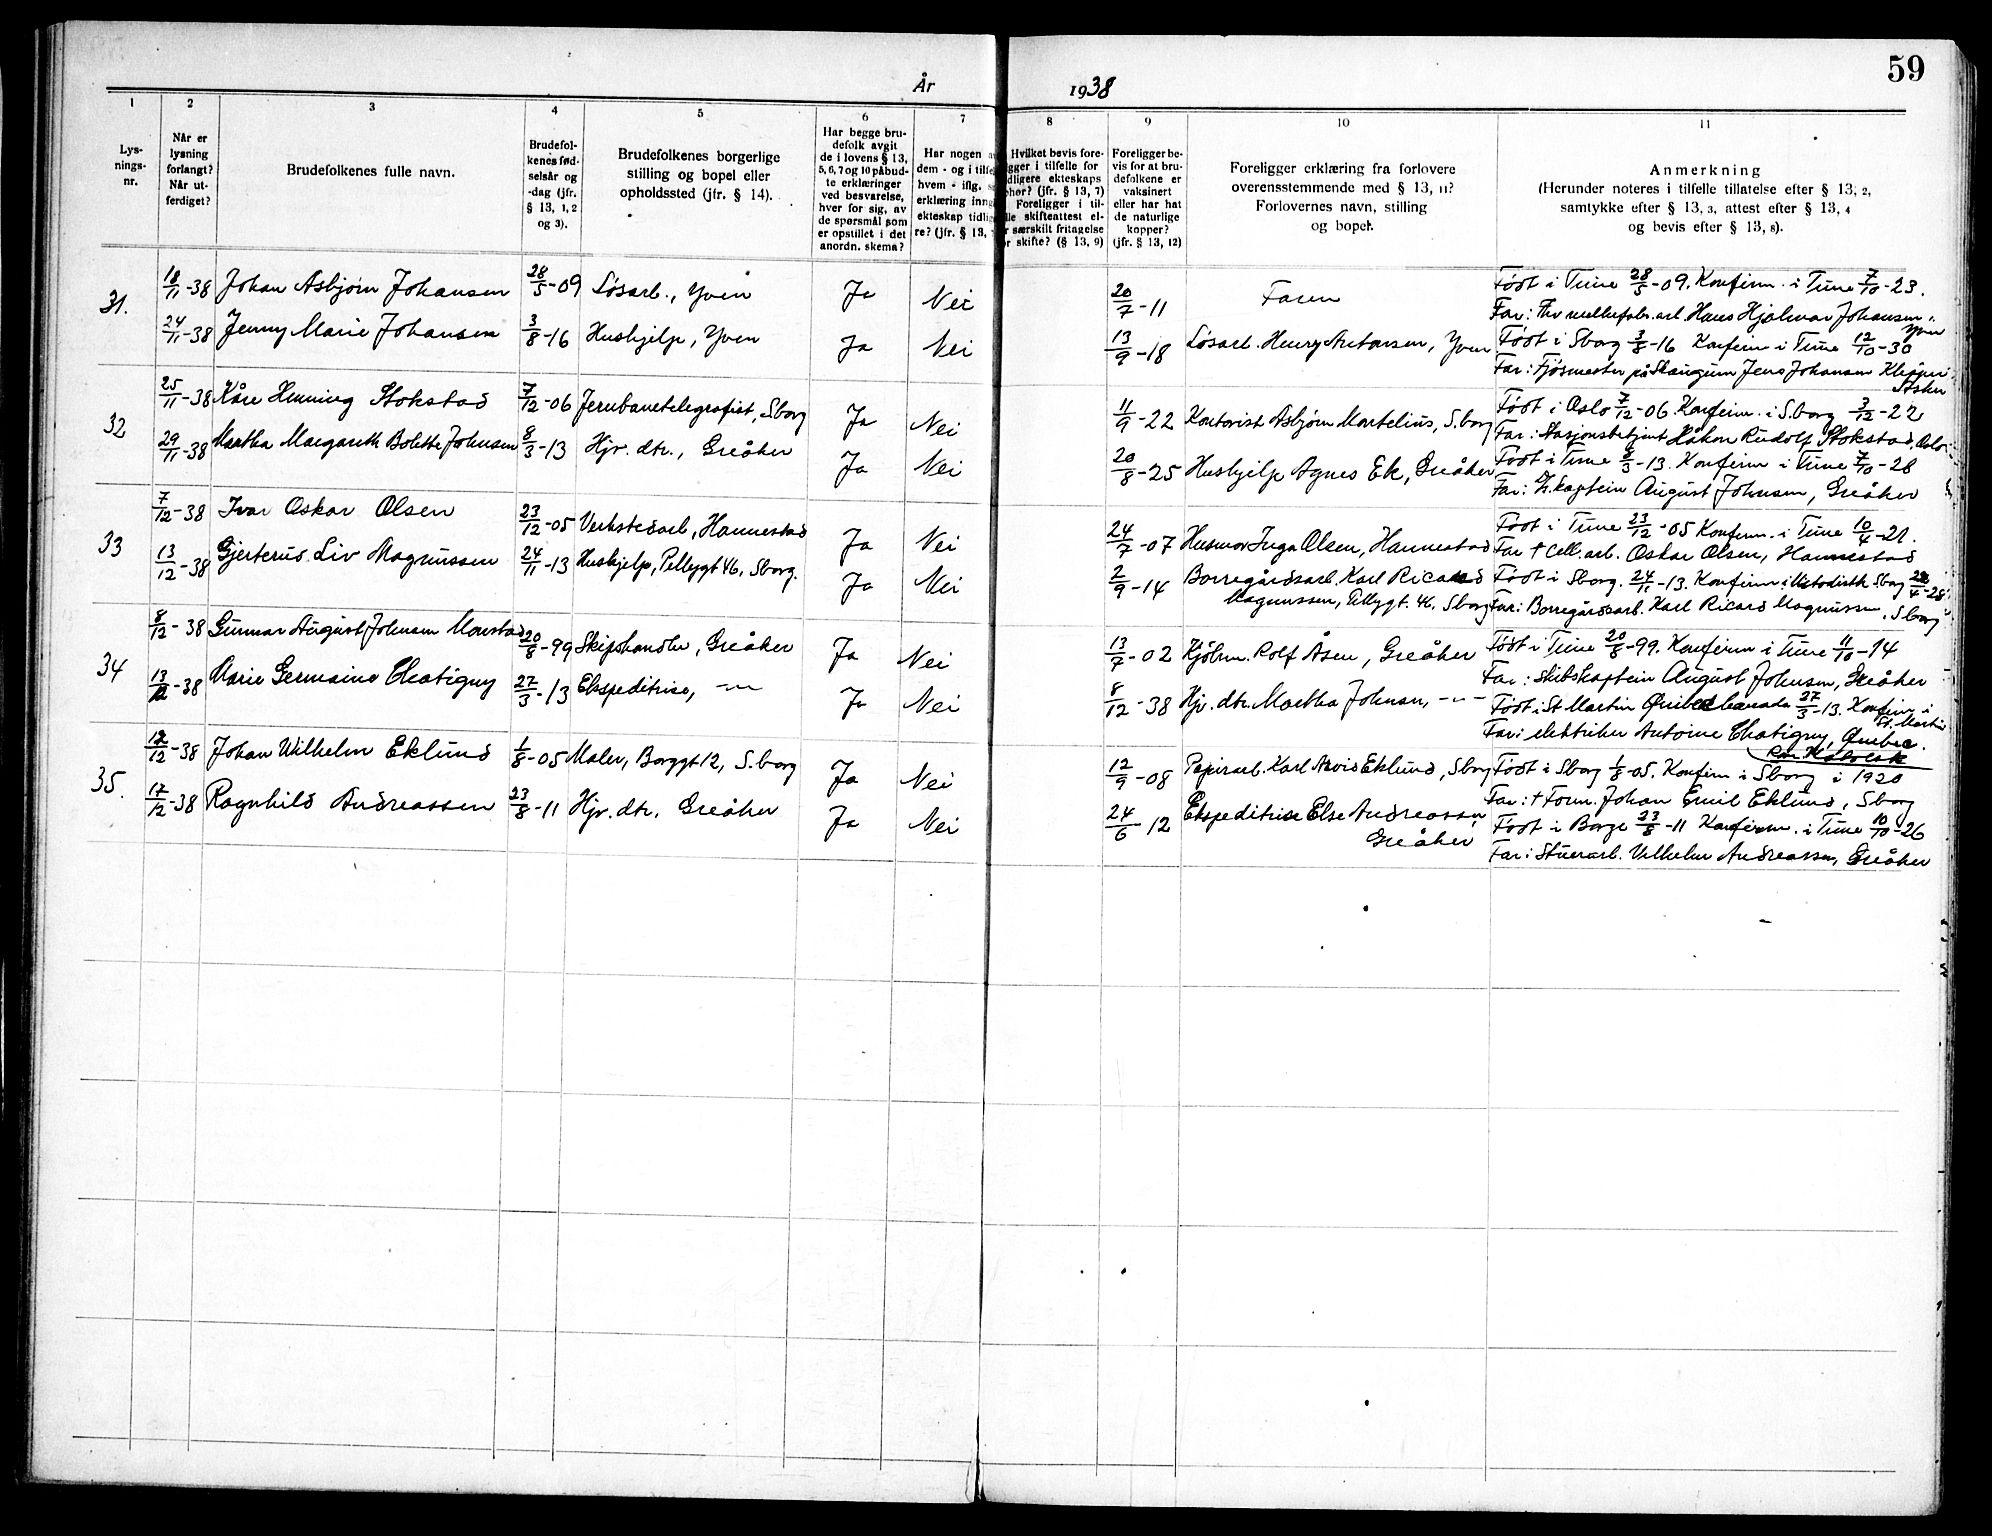 59
År 1938
1 2 3 4 5 6 7 8 9 10 11
Lys-
nings-
nr.
Når er
lysning
forlangt?
Når ut-
ferdiget?
Brudefolkenes fulle navn.
Brudefol-
kenes fød-
selsår og
-dag (jfr.
§ 13, 1, 2
og 3).
Brudefolkenes borgerlige
stilling og bopel eller
opholdssted (jfr. § 14).
Har begge bru-
defolk avgit
de i lovens § 13,
5, 6, 7 og 10 påbud-
te erklæringer
ved besvarelse,
hver for sig, av
de spørsmål som
er opstillet i det
anordn. skema?
Har nogen a
dem - og i tilfe
hvem - iflg. s
erklæring inng
ekteskap tidlig
re? (jfr. § 13,
Hvilket bevis fore-
gger i tilfelle for
dligere ekteskaps
phør? (jfr. § 13, 7)
Foreligger i til-
lle skifteattest el-
r særskilt fritagelse
r skifte? (§ 13, 9)
Foreligger be-
vis for at bru-
defolkene er
vaksinert
eller har hat
de naturlige
kopper?
(jfr. § 13, 12)
Foreligger erklæring fra forlovere
overensstemmende med § 13, 11?
Forlovernes navn, stilling
og bopel.
Anmerkning
(Herunder noteres i tilfelle tillatelse efter § 13, 2,
samtykke efter § 13, 3, attest efter § 13, 4
og bevis efter § 13, 8).
31. 18/11-38 Johan Asbjørn Johansen 28/5-09 Løsarb., Yven Ja Nei 20/7-11 Faren Født i Tune 28/5-09. Konfirm. i Tune 7/10-23.
Far: Hans Hjalmar Johansen, Yven
24/11-38 Jenny Marie Johansen 3/8-16 Hushjelp, Yven Ja Nei 13/9-18 Løsarb. Henry Antonsen, Yven Født i Sborg 3/8-16 Konfirm i Tune 12/10-30
Far: Fjøsmester på Skaugum Jens Johansen Asker
32 25/11-38 Kåre Henning Stokstad 7/12-06 Jernbanetelegrafist, Sborg Ja Nei 11/9-22 Kontorist Asbjørn Martelius, S.borg Født i Oslo 7/12-06. Konfirm. i S.borg 3/12-22
Far: Stasjonsbetjent Håkon Rudolf Stokstad, Oslo
29/11-38 Martha Margareth Bolette Johnsen 8/3-13 Hjv. dtr., Greåker Ja Nei 20/8-25 Hushjelp Agnes Ek, Greåker Født i Tune 8/3-13. Konfirm i Tune 7/10-28
Far: kaptein August Johnsen, Greåker
33 7/12-38 Ivar Oskar Olsen 23/12-05 Verkstedarb, Hannestad Ja Nei 24/7-07 Husmor Inga Olsen, Hannestad Født i Tune 23/12-05 Konfirm. i Tune 10/4-21.
Far † Cell. arb. Oskar Olsen, Hannestad
13/12-38 Gjertrud Liv Magnussen 24/11-13 Hushjelp, Pellygt 46, Sborg. Ja Nei 2/9-14 Borregårdsarb. Karl Ricard Født i Sborg. 24/11-13. Konfirm i Metodistk Sborg 22/4-28
Magnussen, Pellygt. 46, Sborg Far: Borregårdsarb. Karl Ricard Magnussen, Sborg
34 8/12-38 Gunnar August Johnsen Monstad 20/8-99 Skipshandler, Greåker Ja Nei 13/7-02 Kjølm. Rolf Åsen, Greåker Født i Tune 20/8-99. Konfirm i Tune 11/10-14
Far: Skibskaptein August Johnsen, Greåker
13/12-38 Marie Germaine Chatigny 27/3-13 Ekspeditrise, -"- Ja Nei 8/12-38 Hjv. dtr. Martha Johnsen, -"- Født i St Martin Quibec Canada 27/3-13. Konfirm i St. Martin
Far: elektriker Antoine Chatigny, Quebec.
Rom. Katolsk
35. 12/12-38 Johan Wilhelm Eklund 1/8-05 Maler, Borggt 12, S.borg Ja Nei 12/9-08 Papirarb. Karl Arvid Eklund, Sborg Født i Sborg 1/8-05. Konfirm i Sborg i 1920
Far: † Form. Johan Emil Eklund, Sborg
17/12-38 Ragnhild Andreassen 23/8-11 Hjv. dtr. Greåker Ja Nei 24/6-12 Ekspeditrise Else Andreassen, Født i Borge 23/8-11 Konfirm. i Tune 10/10-26
Greåker Far: Stuerarb. Vilhelm Andreassen, Greåker